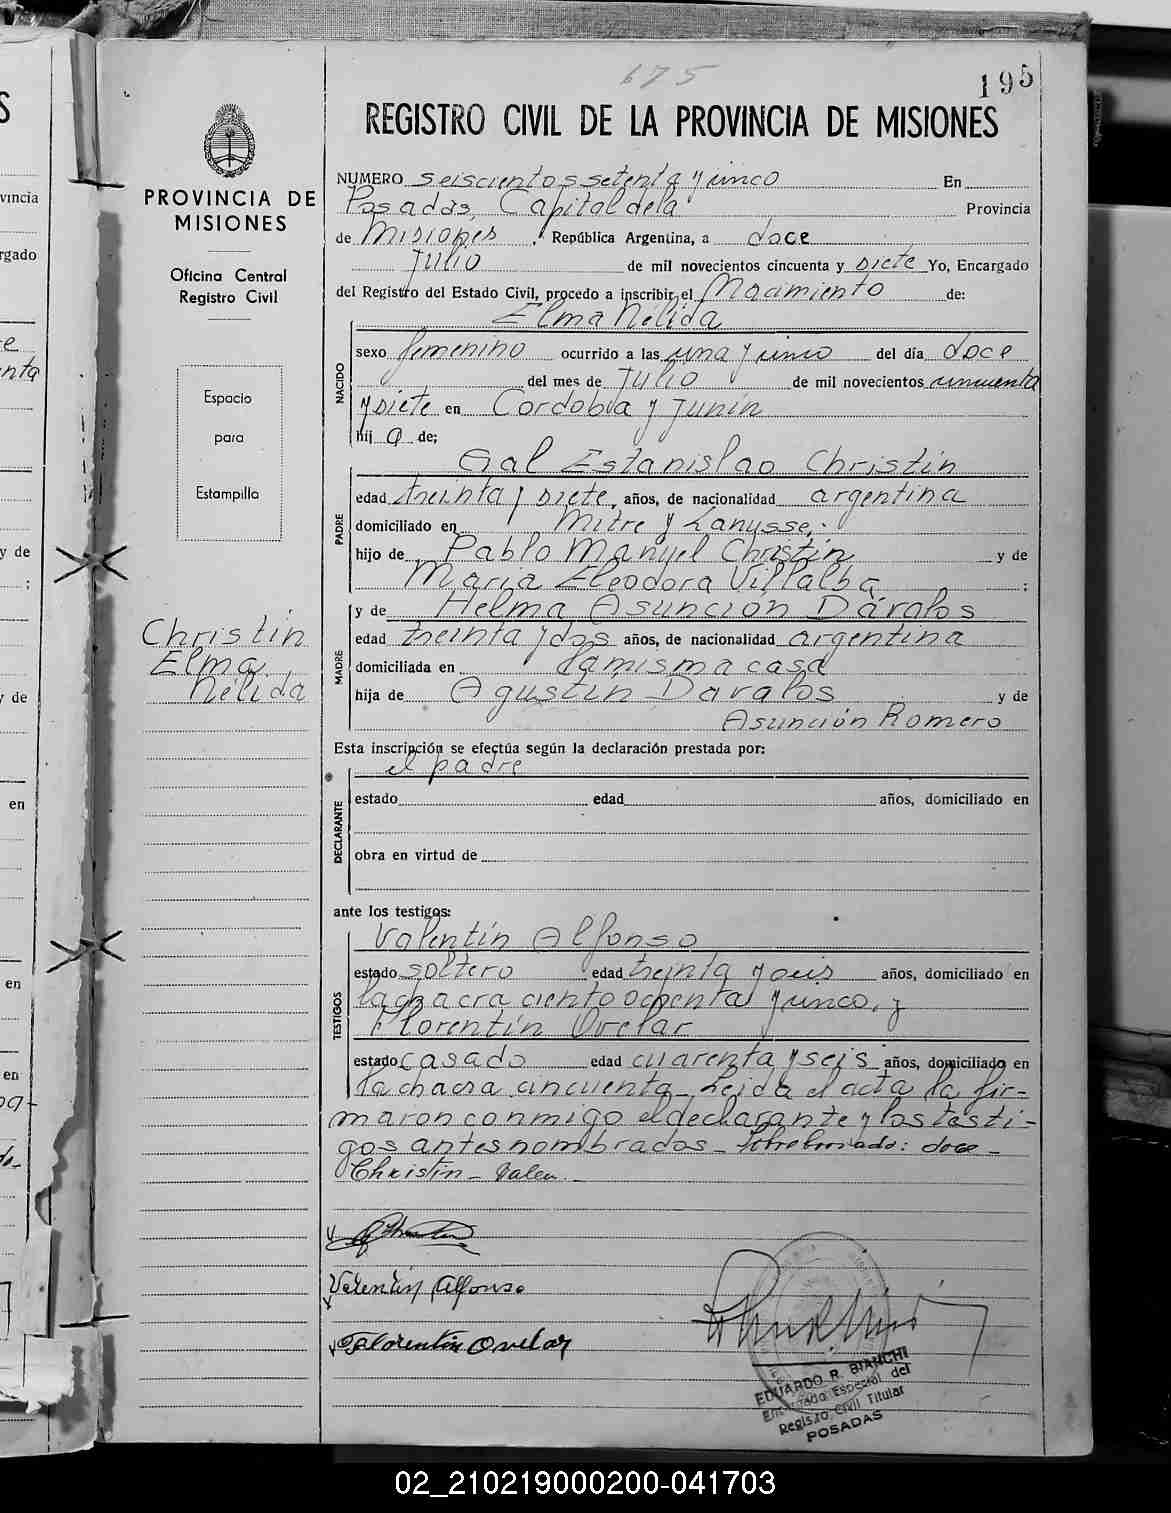 675
195
REGISTRO CIVIL DE LA PROVINCIA DE MISIONES
PROVINCIA DE
MISIONES
Oficina Central
Registro Civil
Espacio
para
Estampilla
Christin
Elma
Nélida
NUMERO seiscientos setenta y cinco En
Posadas, Capital de la Provincia
de Misiones, República Argentina, a doce
Julio de mil novecientos cincuenta y siete Yo, Encargado
del Registro del Estado Civil, procedo a inscribir el Nacimiento de:
Elma Nélida
NACIDO
sexo femenino ocurrido a las una y cinco del día doce
del mes de Julio de mil novecientos cincuenta
y siete en Cordoba y Junín
hij a de;
PADRE
Gal Estanislao Christin
edad treinta y siete, años, de nacionalidad argentina
domiciliado en Mitre y Lanusse,
hijo de Pablo Manuel Christin y de
Maria Eleodora Villalba ;
MADRE
y de Helma Asunción Dávalos
edad treinta y dos años, de nacionalidad argentina
domiciliada en la misma casa
hija de Agustín Davalos y de
Asunción Romero
Esta inscripción se efectúa según la declaración prestada por:
el padre
DECLARANTE
estado edad años, domiciliado en
obra en virtud de
ante los testigos:
TESTIGOS
Valentín Alfonso
estado soltero edad treinta y seis años, domiciliado en
la chacra ciento ochenta y cinco, y
Florentín Ovelar
estado casado edad cuarenta y seis años, domiciliado en
la chacra cincuenta_ Leida el acta la fir=
maron conmigo el declarante y los testi-
gos antes nombrados_ Sobreborrado: doce_
Christin_ Valen_
Valentín Alfonso
Florentín Ovelar
EDUARDO R. BIANCHI
Encargado Especial del
Registro Civil Titular
POSADAS
02_210219000200-041703